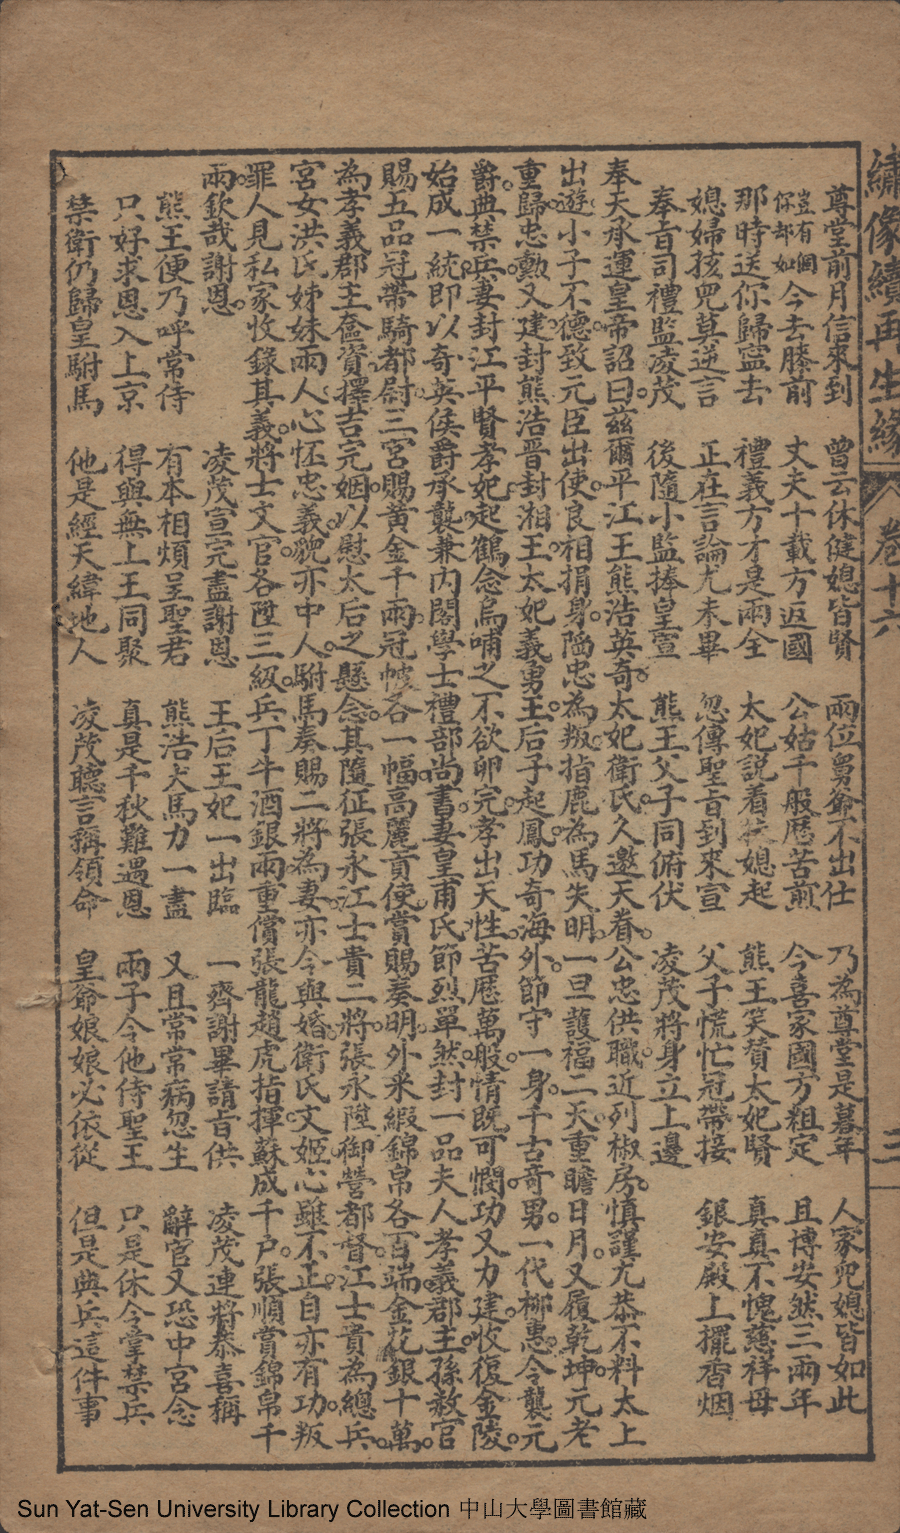 繡像續再生緣 卷十六 三
尊堂前月信來到 曾云休健媳皆賢 兩位舅爺不出仕 乃為尊堂是暮年 人家兒媳皆如此
豈有個你却如今去膝前 丈夫十載方返國 公姑千般歷苦煎 今喜家國方粗定 且博安然三兩年
那時送你歸寧去 禮義方才是兩全 太妃説着 媳起 熊王笑贊太妃賢 真真不愧慈祥母
媳婦孩兒莫逆言 正在言論尤未畢 忽傳聖旨到來宣 父子慌忙冠帶接 銀安殿上擺香烟
奉旨司禮監凌茂 後隨小監捧皇宣 熊王父子同俯伏 凌茂將身立上邊
奉天承運皇帝詔曰茲爾平江王熊浩英奇太妃衛氏久邀天眷公忠供職近列椒房慎謹尤恭不料太上
出遊小子不德致元臣出使良相捐身陷忠為叛指鹿為馬失明一旦護福二天重瞻日月又履乾坤元老
重歸忠勳又建封熊浩晋封湘王太妃義勇王后子起鳳功奇海外節守一身千古奇男一代柳惠令襲元
爵典禁兵妻封江平賢孝妃起鶴念烏哺之不欲卵完孝出天性苦歷萬般情既可憫功又力建收復金陵
始成一統即以奇英侯爵承襲兼内閣學士禮部尚書妻皇甫氏節烈單然封一品夫人孝義郡主孫赦官
賜五品冠帶騎都尉三宮賜黃金千兩冠帔各一幅高麗貢使賞賜奏明外釆緞錦帛各百端金花銀十萬
為孝義郡主奩資擇吉完姻以慰太后之懸念其隨征張永江士貴二將張永陞御營都督江士貴為總兵
宮女洪氏姊妹兩人心怀忠義貌亦中人駙馬奏賜二將為妻亦令與婚衛氏文姬心雖不正自亦有功叛
罪人見私家收錄其義將士文官各陞三級兵丁牛酒銀兩重償張龍趙虎指揮蘇成千户張順賞錦帛千
兩欽哉謝恩 凌茂宣完盡謝恩 王后王妃一出臨 一齊謝畢請旨供 凌茂連將恭喜稱
熊王便乃呼常侍 有本相煩呈聖君 熊浩犬馬力一盡 又且常常病忽生 辭官又恐中宮念
只好求恩入上京 得與無上王同聚 真是千秋難遇恩 兩子令他侍聖王 只是休令掌禁兵
禁衛仍歸皇駙馬 他是經天緯地人 凌茂聽言稱領命 皇爺娘娘必依從 但是典兵這件事
Sun Yat-Sen University Library Collection 中山大學圖書館藏